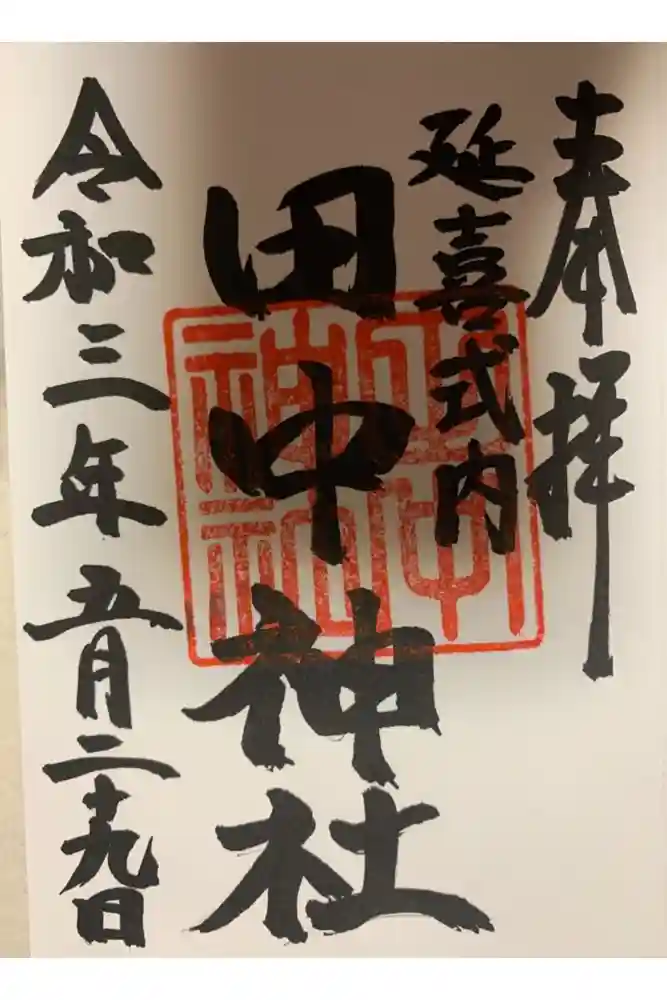 奉拝
延喜式内
田中神社
田中神社
令和三年五月二十九日